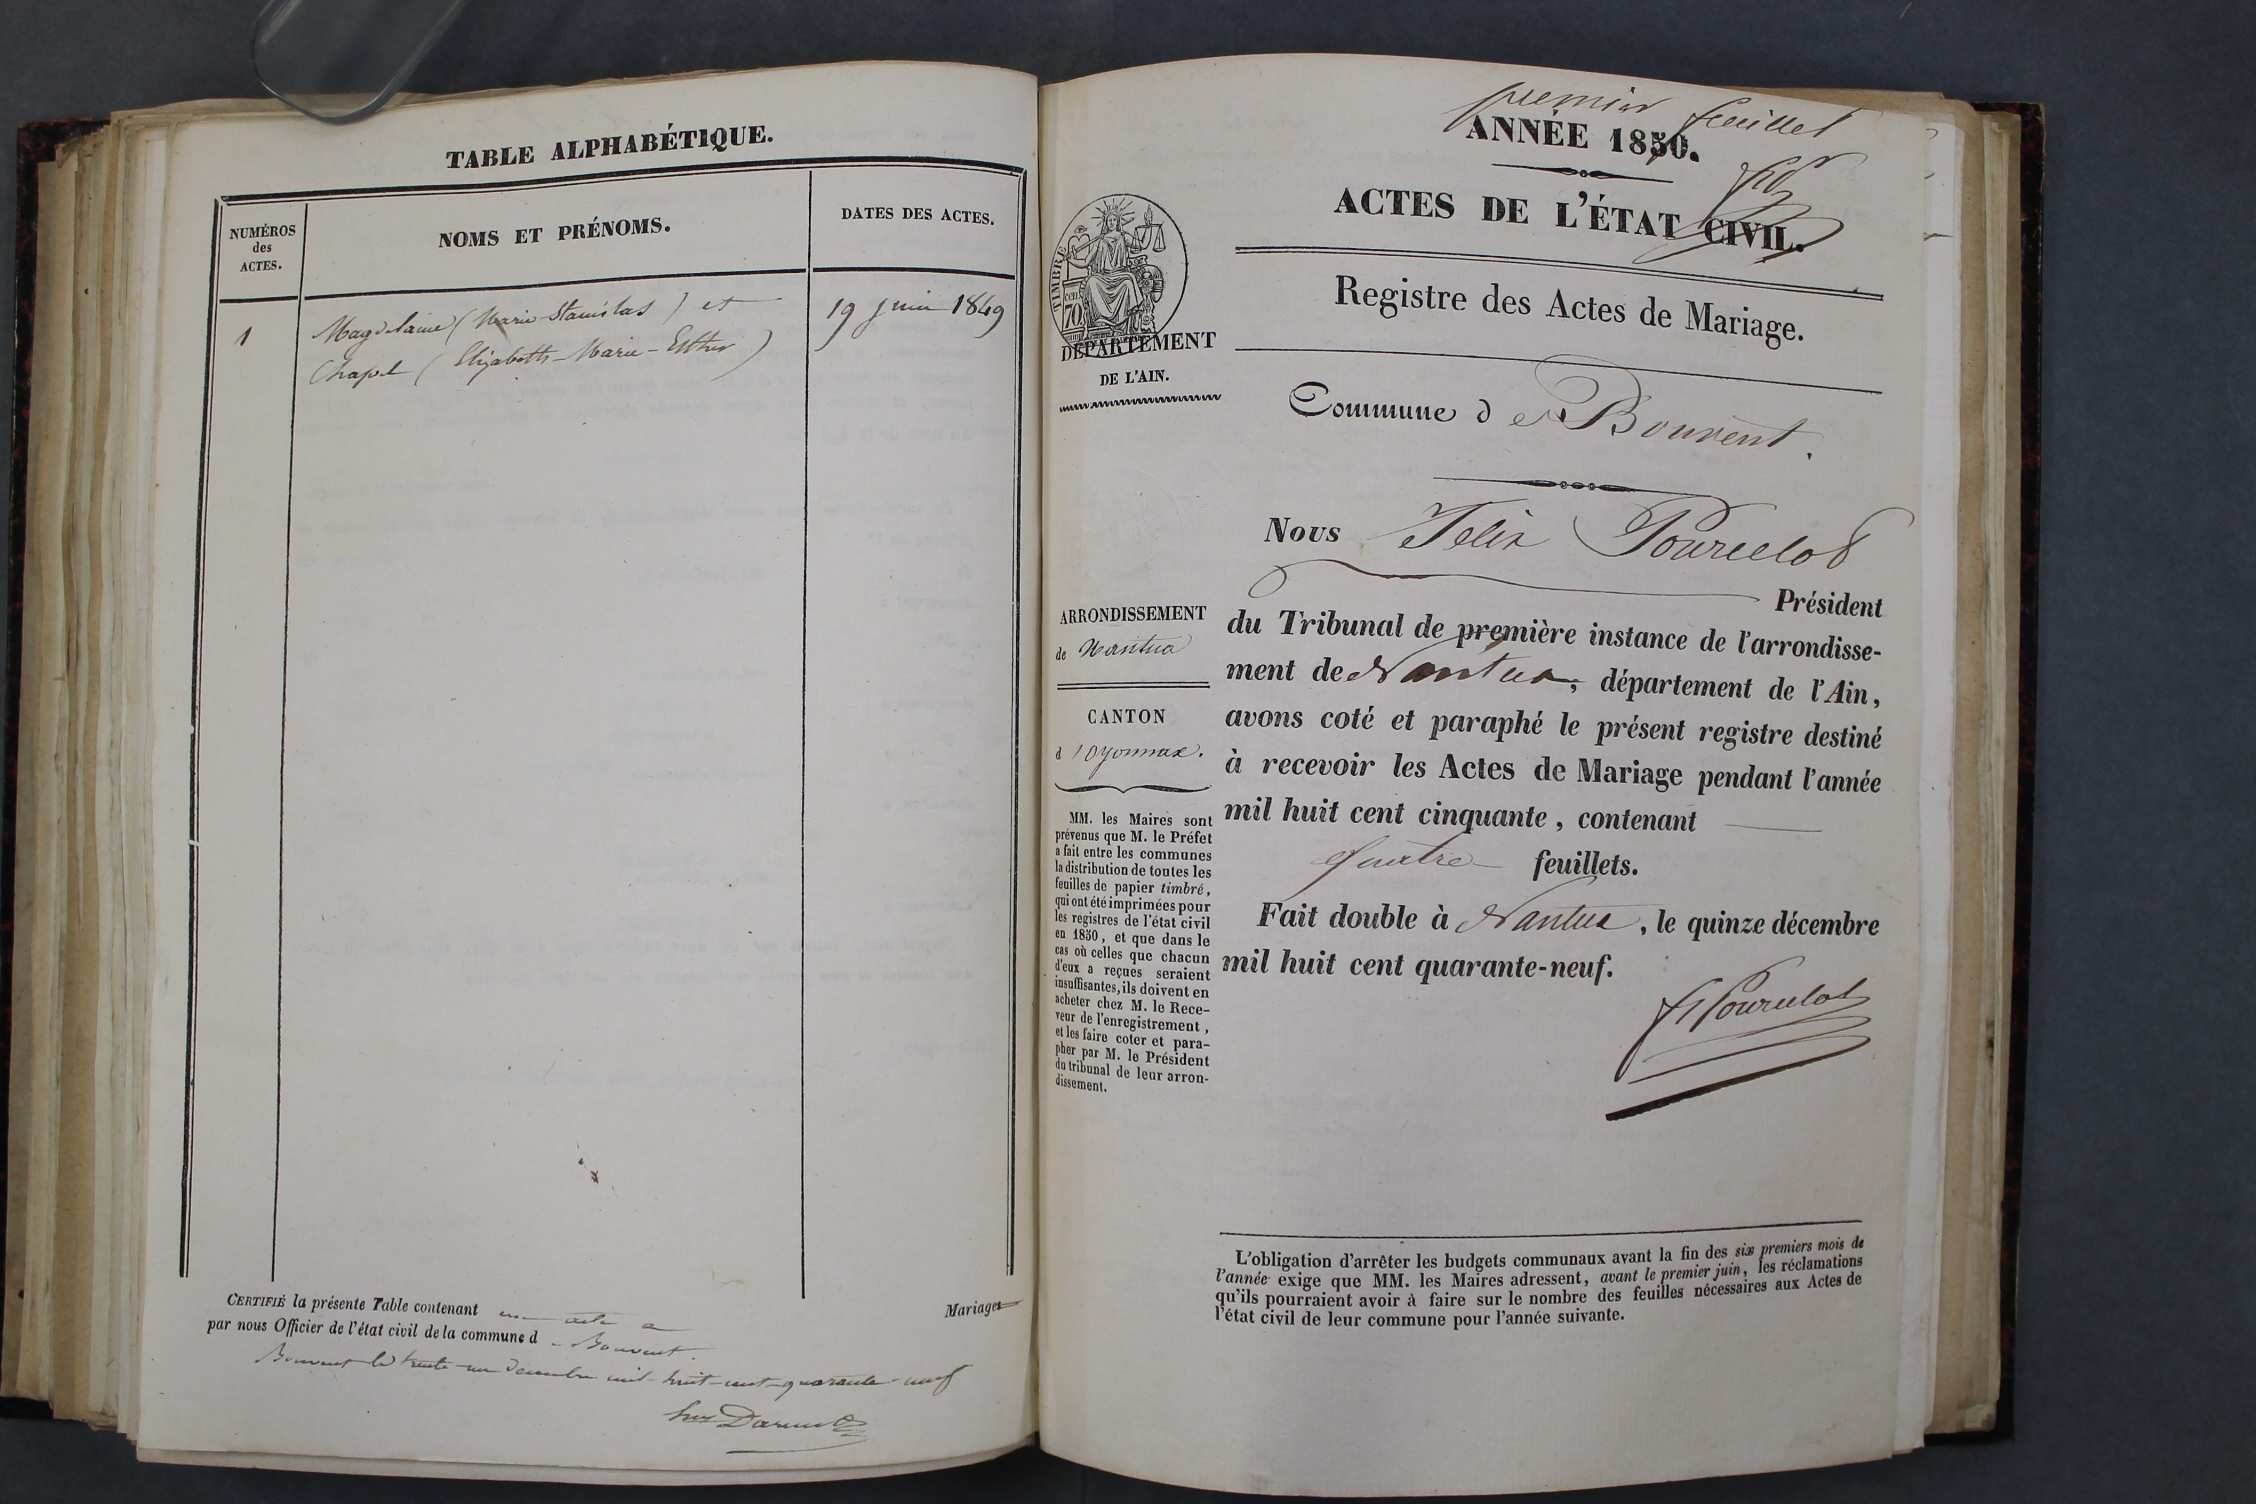 TABLE ALPHABÉTIQUE.
NUMÉROS
des
ACTES.
NOMS ET PRÉNOMS.
DATES DES ACTES.
1
Magdelaine (Marie-Stanislas) et
Chapel (Elizabeth-Marie-Esther)
19 juin 1849
CERTIFIÉ la présente Table contenant un acte
Mariages
par nous Officier de l'état civil de la commune d Bouvent.
Bouvent le trente-un décembre mil-huit-cent-quarante-neuf
premier feuillet
ANNÉE 1850.
ACTES DE L'ÉTAT CIVIL.
Registre des Actes de Mariage.
TIMBRE
70
DÉPARTEMENT
DE L'AIN.
Commune de Bouvent.
Nous Félix Pourcelot
Président
ARRONDISSEMENT
de Nantua
CANTON
d'Oyonnax.
MM. les Maires sont
prévenus que M. le Préfet
a fait entre les communes
la distribution de toutes les
feuilles de papier timbré,
qui ont été imprimées pour
les registres de l'état civil
en 1850, et que dans le
cas où celles que chacun
d'eux a reçues seraient
insuffisantes, ils doivent en
acheter chez M. le Rece-
veur de l'enregistrement,
et les faire coter et para-
pher par M. le Président
du tribunal de leur arron-
dissement.
du Tribunal de première instance de l'arrondisse-
ment de Nantua, département de l'Ain,
avons coté et paraphé le présent registre destiné
à recevoir les Actes de Mariage pendant l'année
mil huit cent cinquante, contenant
quatre feuillets.
Fait double à Nantua, le quinze décembre
mil huit cent quarante-neuf.
F Pourcelot
L'obligation d'arrêter les budgets communaux avant la fin des six premiers mois de
l'année exige que MM. les Maires adressent, avant le premier juin, les réclamations
qu'ils pourraient avoir à faire sur le nombre des feuilles nécessaires aux Actes de
l'état civil de leur commune pour l'année suivante.